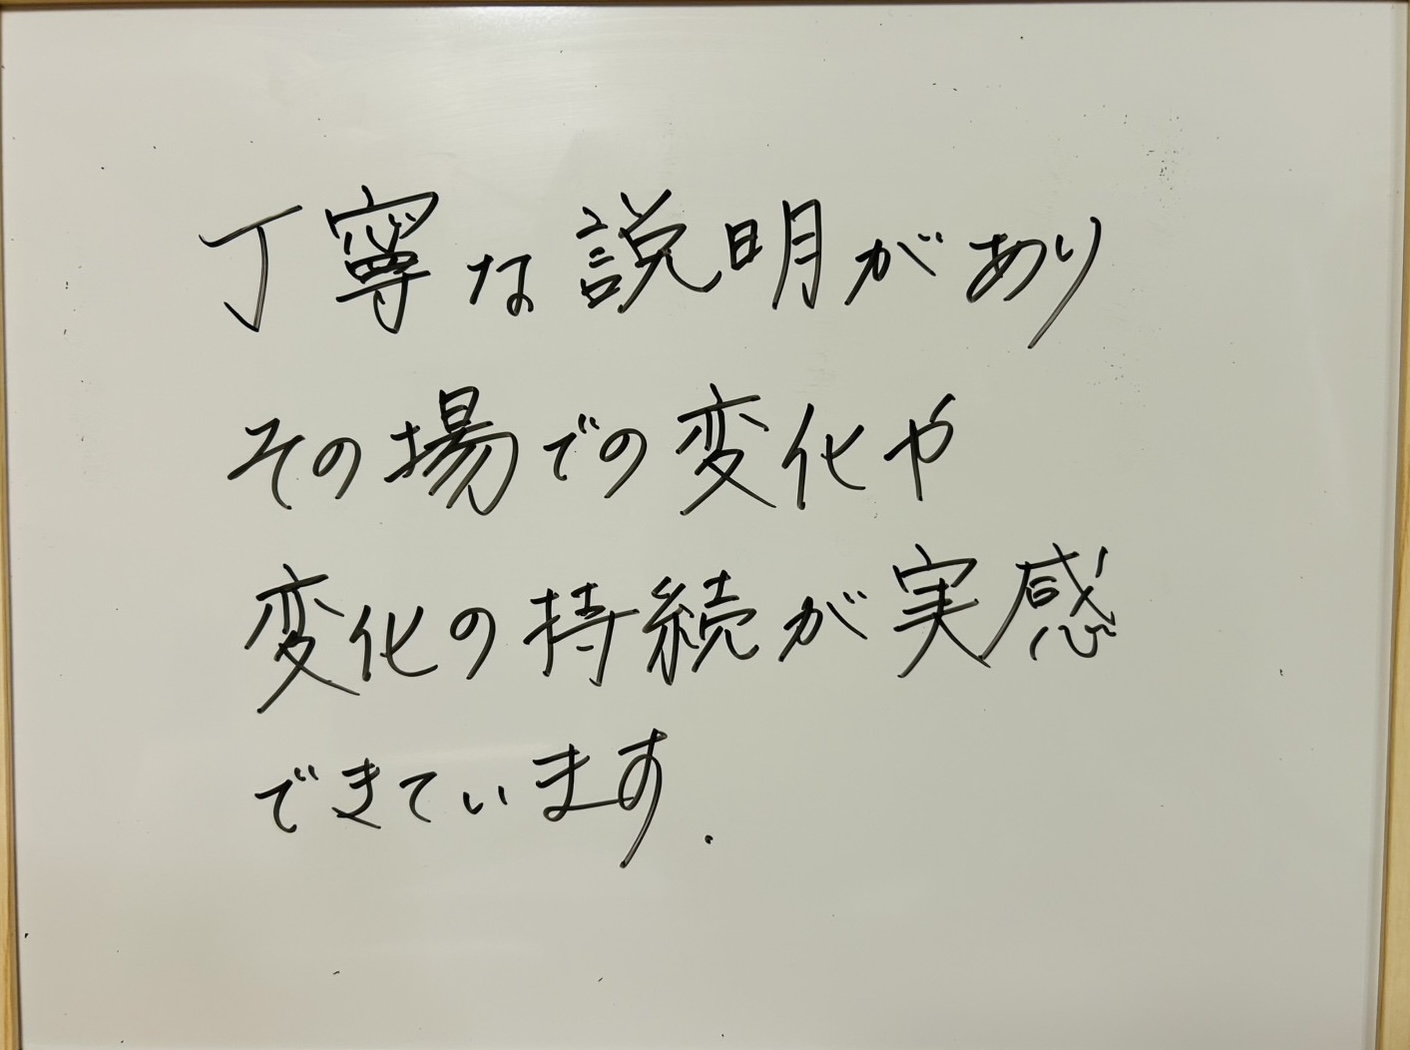 丁寧な説明があり
その場での変化や
変化の持続が実感
できています.